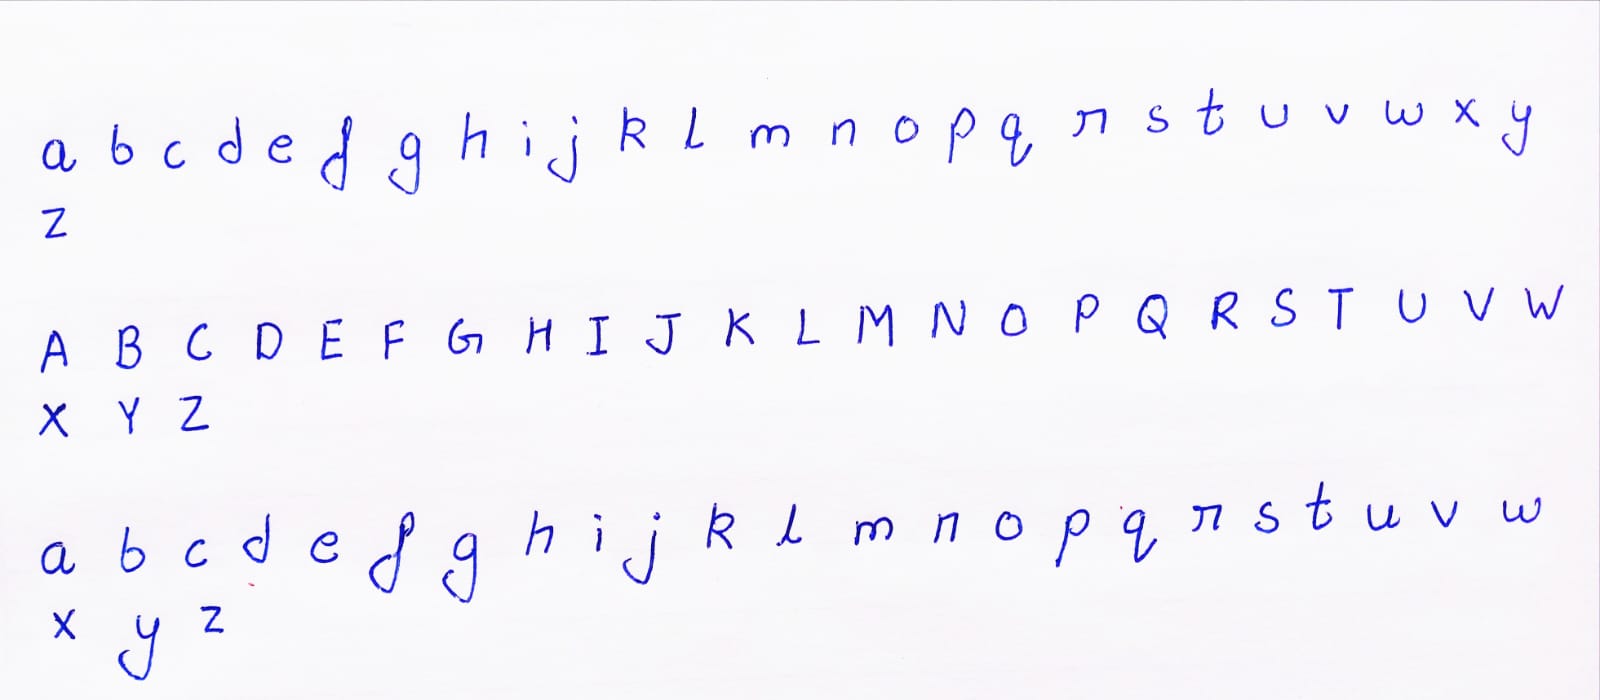 a b c d e f g h i j k l m n o p q r s t u v w x y
z
A B C D E F G H I J K L M N O P Q R S T U V W
X Y Z
a b c d e f g h i j k l m n o p q r s t u v w
x y z